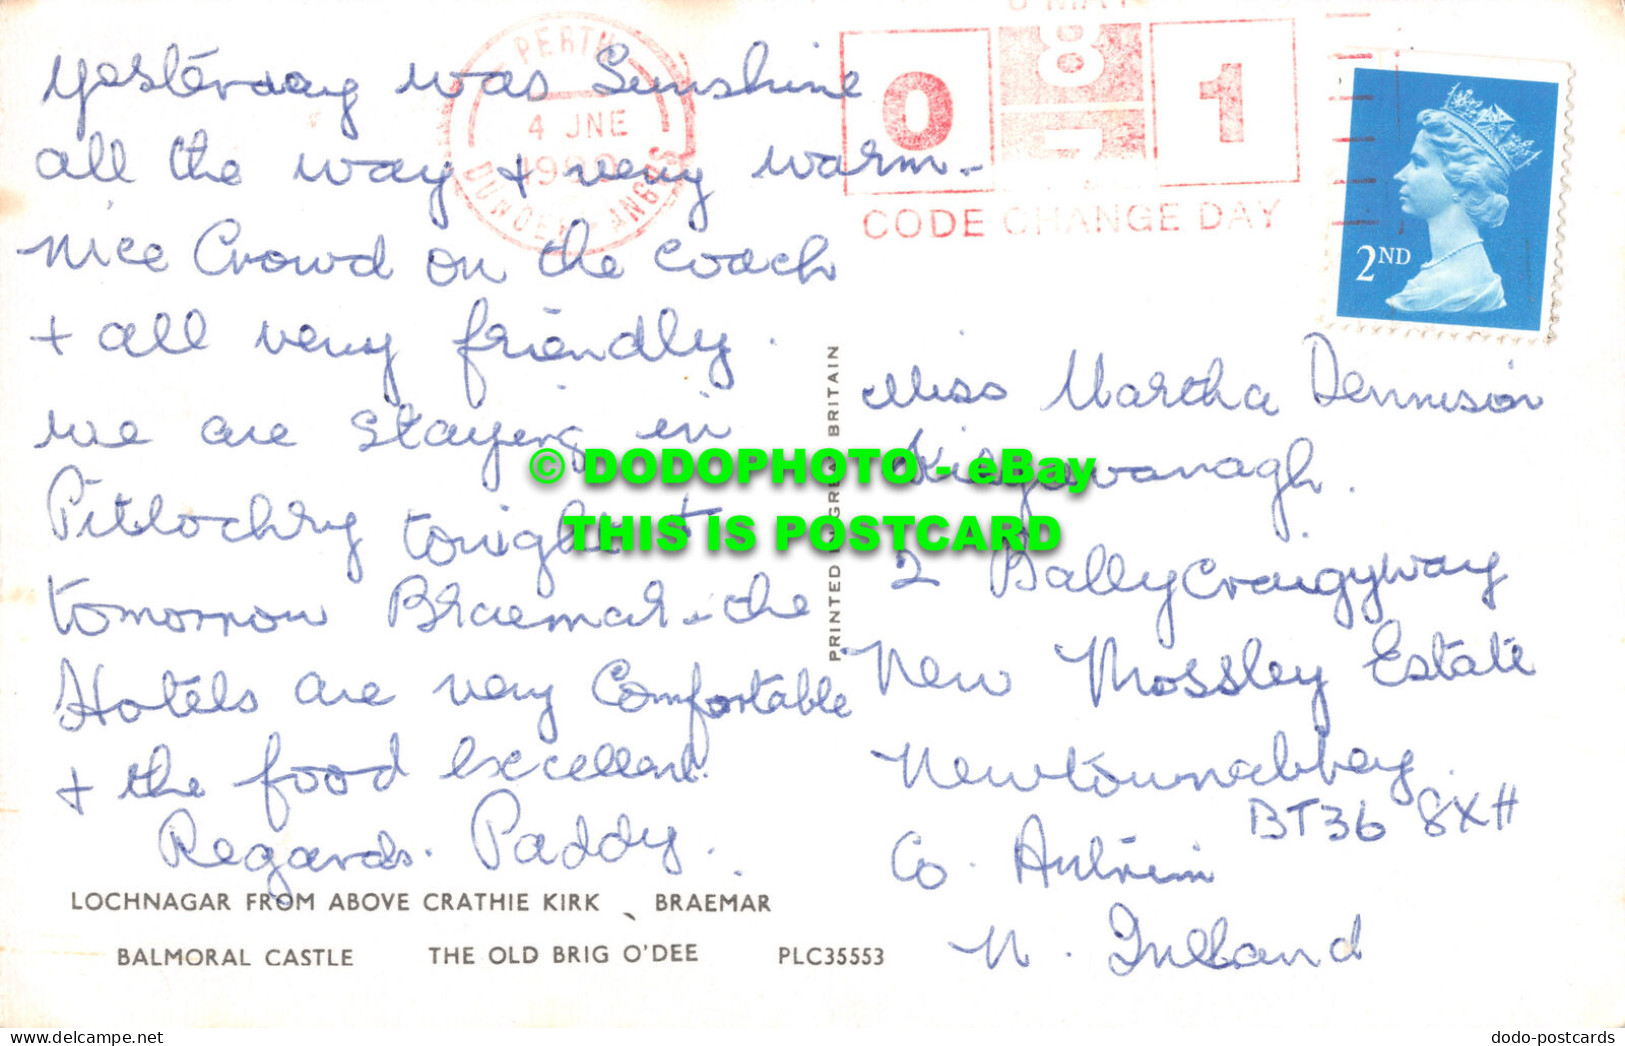 Yesterday was Sunshine
all the way + very warm -
nice Crowd on the coach
+ all very friendly.
we are staying in
Pitlochry tonight +
tomorrow Braemar - the
Hotels are very Comfortable
+ the food excellent.
Regards. Paddy.
LOCHNAGAR FROM ABOVE CRATHIE KIRK BRAEMAR
BALMORAL CASTLE THE OLD BRIG O'DEE PLC35553
PRINTED IN GREAT BRITAIN
PERTH
4 JNE
1990
DUNDEE - ANGUS
6 MAY
0 8 1
7
CODE CHANGE DAY
2ND
Miss Martha Dennison
Kilgavanagh.
2 BallyCraigyway
New Mossley Estate
Newtownabbey.
BT36 8XH
Co. Antrim
N. Ireland
© DODOPHOTO - eBay
THIS IS POSTCARD
delcampe.net
dodo-postcards